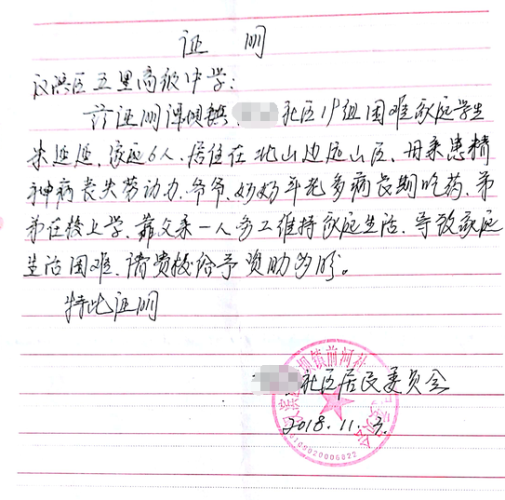 证明
汉滨区五里高级中学:
兹证明谭坝镇 社区19组困难家庭学生
朱 , 家庭6人, 居住在北山边远山区、母亲患精
神病丧失劳动力、爷爷、奶奶年老多病长期吃药、弟
弟在校上学、靠父亲一人务工维持家庭生活、导致家庭
生活困难、请贵校给予资助为盼。
特此证明
社区居民委员会
2018.11.3.
镇前河社